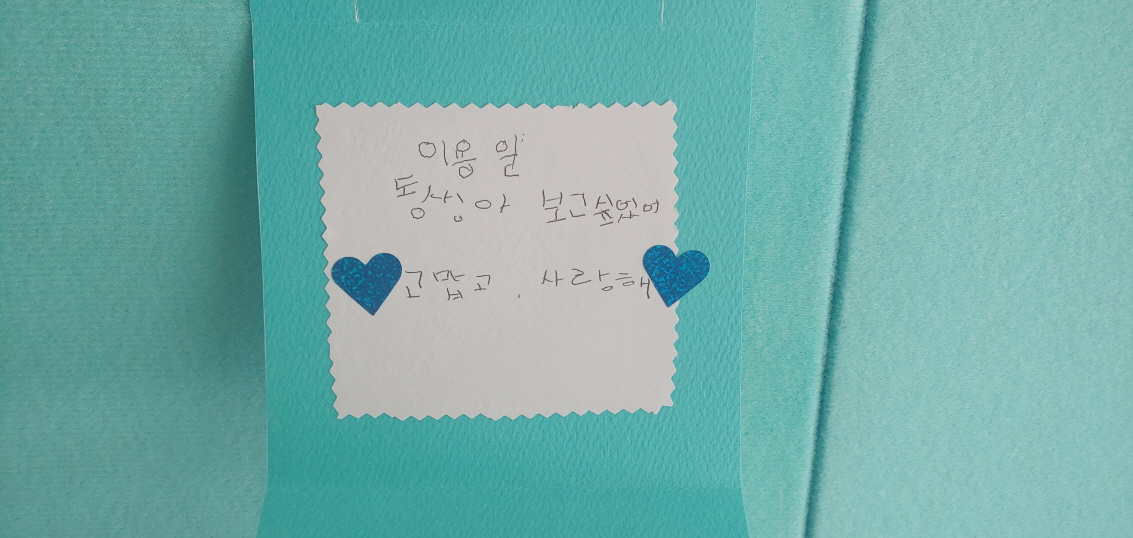 이용일
동싱아 보근싶었어
고맙고. 사랑해